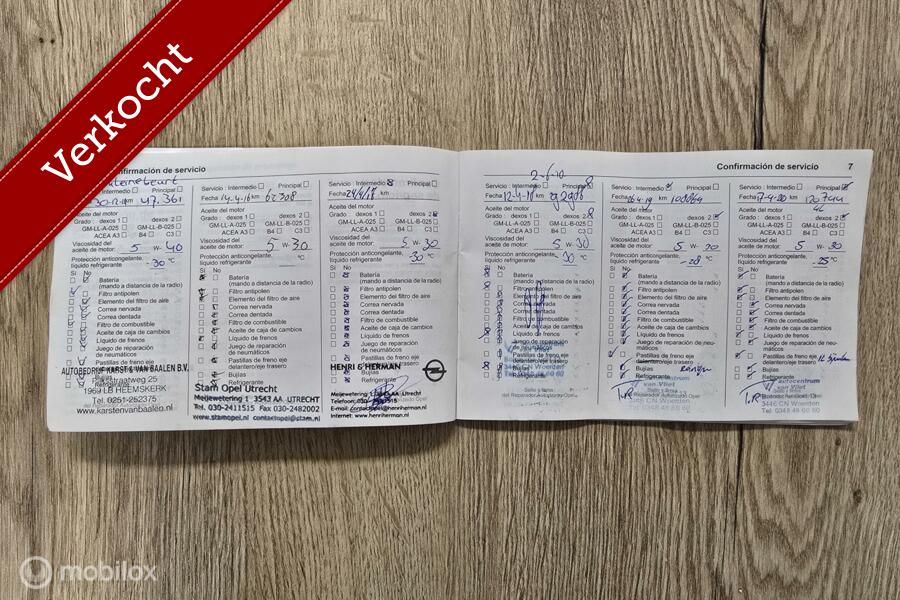 Verkocht
Confirmación de servicio
47.361
Aceite del motor
Grado: dexos 1 dexos 2
GM-LL-A-025 GM-LL-B-025
ACEA A3 B4 C3
Viscosidad del
aceite de motor: 5 W- 40
Protección anticongelante,
líquido refrigerante -30 °C
Sí No
Batería
(mando a distancia de la radio)
Filtro antipolen
Elemento del filtro de aire
Correa nervada
Correa dentada
Filtro de combustible
Aceite de caja de cambios
Líquido de frenos
Juego de reparación
de neumáticos
Pastillas de freno eje
delantero/eje trasero
AUTOBEDRIJF KARST & VAN BAALEN B.V.
1969 LB HEEMSKERK
Tel. 0251-252375
www.karstenvanbaalen.nl
Servicio: Intermedio Principal
Fecha 14.4.16 km 62308
Aceite del motor
Grado: dexos 1 dexos 2
GM-LL-A-025 GM-LL-B-025
ACEA A3 B4 C3
Viscosidad del
aceite de motor: 5 W- 30
Protección anticongelante,
líquido refrigerante °C
Sí No
Batería
(mando a distancia de la radio)
Filtro antipolen
Elemento del filtro de aire
Correa nervada
Correa dentada
Filtro de combustible
Aceite de caja de cambios
Líquido de frenos
Juego de reparación
de neumáticos
Pastillas de freno eje
delantero/eje trasero
Bujías
Refrigerante
Stam Opel Utrecht
Meijewetering 1 3543 AA UTRECHT
Tel. 030-2411515 Fax 030-2482002
www.stamopel.nl contactopel@stam.nl
Servicio: Intermedio Principal
Fecha km
Aceite del motor
Grado: dexos 1 dexos 2
GM-LL-A-025 GM-LL-B-025
ACEA A3 B4 C3
Viscosidad del
aceite de motor: 5 W- 30
Protección anticongelante,
líquido refrigerante -30 °C
Sí No
Batería
(mando a distancia de la radio)
Filtro antipolen
Elemento del filtro de aire
Correa nervada
Correa dentada
Filtro de combustible
Aceite de caja de cambios
Líquido de frenos
Juego de reparación
de neumáticos
Pastillas de freno eje
delantero/eje trasero
Bujías
Refrigerante
HENRI & HERMAN
OPEL
Meijewetering 1
E-mail: contactopel@henriherman.nl
Internet: www.henriherman.nl
Confirmación de servicio 7
Servicio: Intermedio Principal
Fecha km
Aceite del motor
Grado: dexos 1 dexos 2
GM-LL-A-025 GM-LL-B-025
ACEA A3 B4 C3
Viscosidad del
aceite de motor: 5 W- 30
Protección anticongelante,
líquido refrigerante -30 °C
Sí No
Batería
(mando a distancia de la radio)
Filtro antipolen
Elemento del filtro de aire
Correa nervada
Correa dentada
Filtro de combustible
Aceite de caja de cambios
Líquido de frenos
Juego de reparación
de neumáticos
Pastillas de freno eje
delantero/eje trasero
Bujías
Refrigerante
Servicio: Intermedio Principal
Fecha km
Aceite del motor
Grado: dexos 1 dexos 2
GM-LL-A-025 GM-LL-B-025
ACEA A3 B4 C3
Viscosidad del
aceite de motor: 5 W-
Protección anticongelante,
líquido refrigerante -28 °C
Sí No
Batería
(mando a distancia de la radio)
Filtro antipolen
Elemento del filtro de aire
Correa nervada
Correa dentada
Filtro de combustible
Aceite de caja de cambios
Líquido de frenos
Juego de reparación
de neumáticos
Pastillas de freno eje
delantero/eje trasero
Bujías
Refrigerante
autocentrum
van Vliet
3446 CN Woerden
Tel 0348 48 60 60
Servicio: Intermedio Principal
Fecha 7-4-20 km
4L
Aceite del motor
Grado: dexos 1 dexos 2
GM-LL-A-025 GM-LL-B-025
ACEA A3 B4 C3
Viscosidad del
aceite de motor: 5 W- 30
Protección anticongelante,
líquido refrigerante -25 °C
Sí No
Batería
(mando a distancia de la radio)
Filtro antipolen
Elemento del filtro de aire
Correa nervada
Correa dentada
Filtro de combustible
Aceite de caja de cambios
Líquido de frenos
Juego de reparación
de neumáticos
Pastillas de freno eje
delantero/eje trasero
Bujías
Refrigerante
autocentrum
van Vliet
3446 CN Woerden
Tel 0348 48 60 60
mobilox